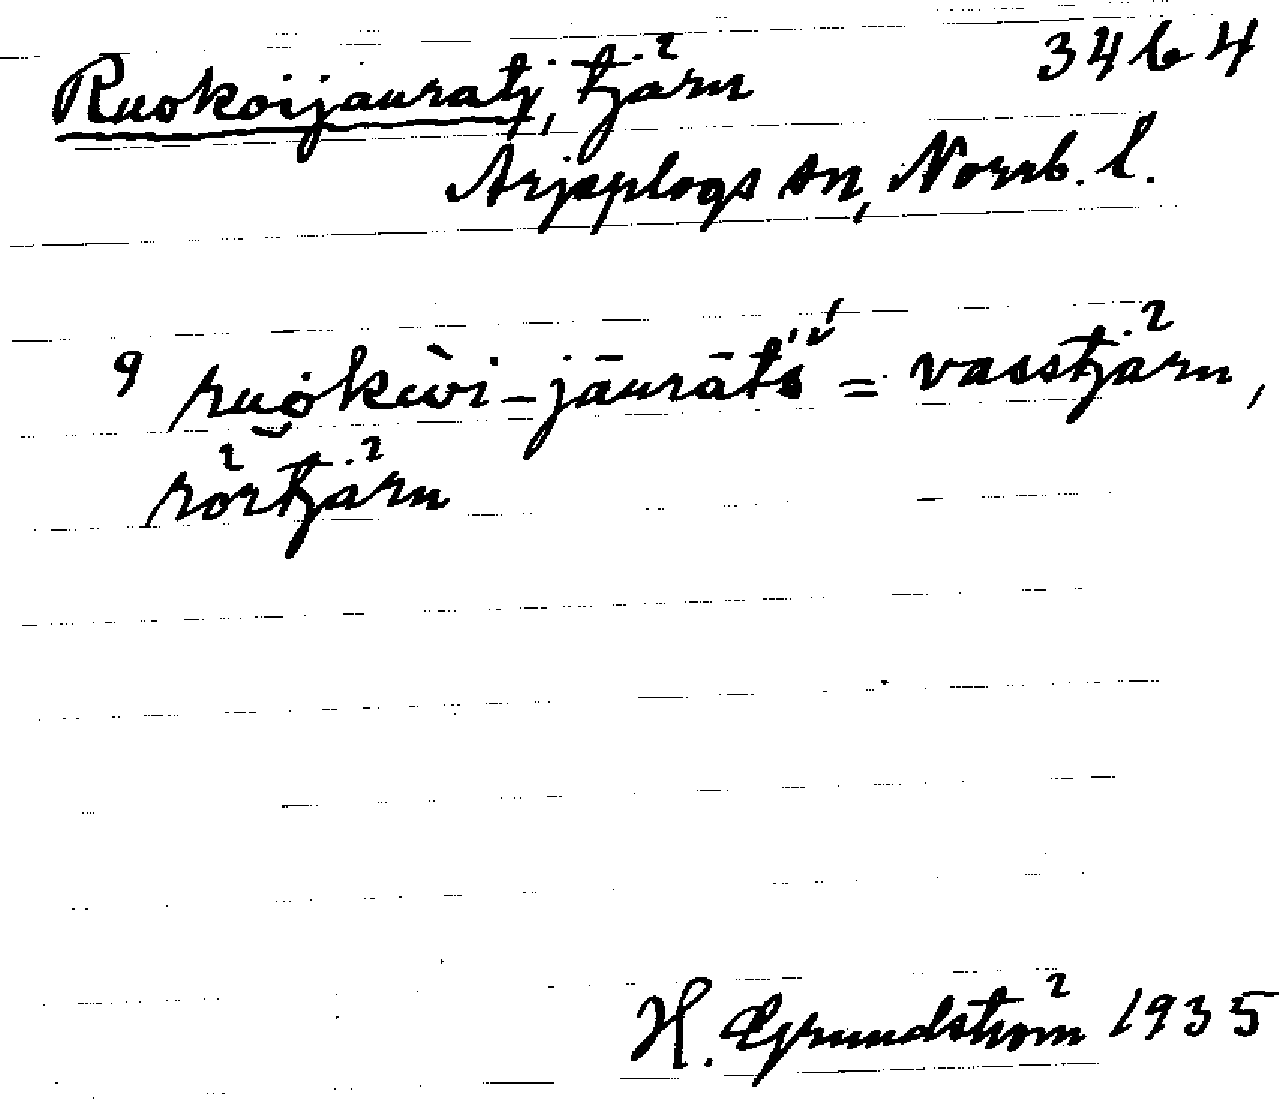 Ruokoijauratj, tjärn 3464
Arjeplogs sn, Norrb. l.
9 ruȯ̭kɯ̀i-jāurātś = vasstjärn,
rörtjärn
H. Grundström 1935